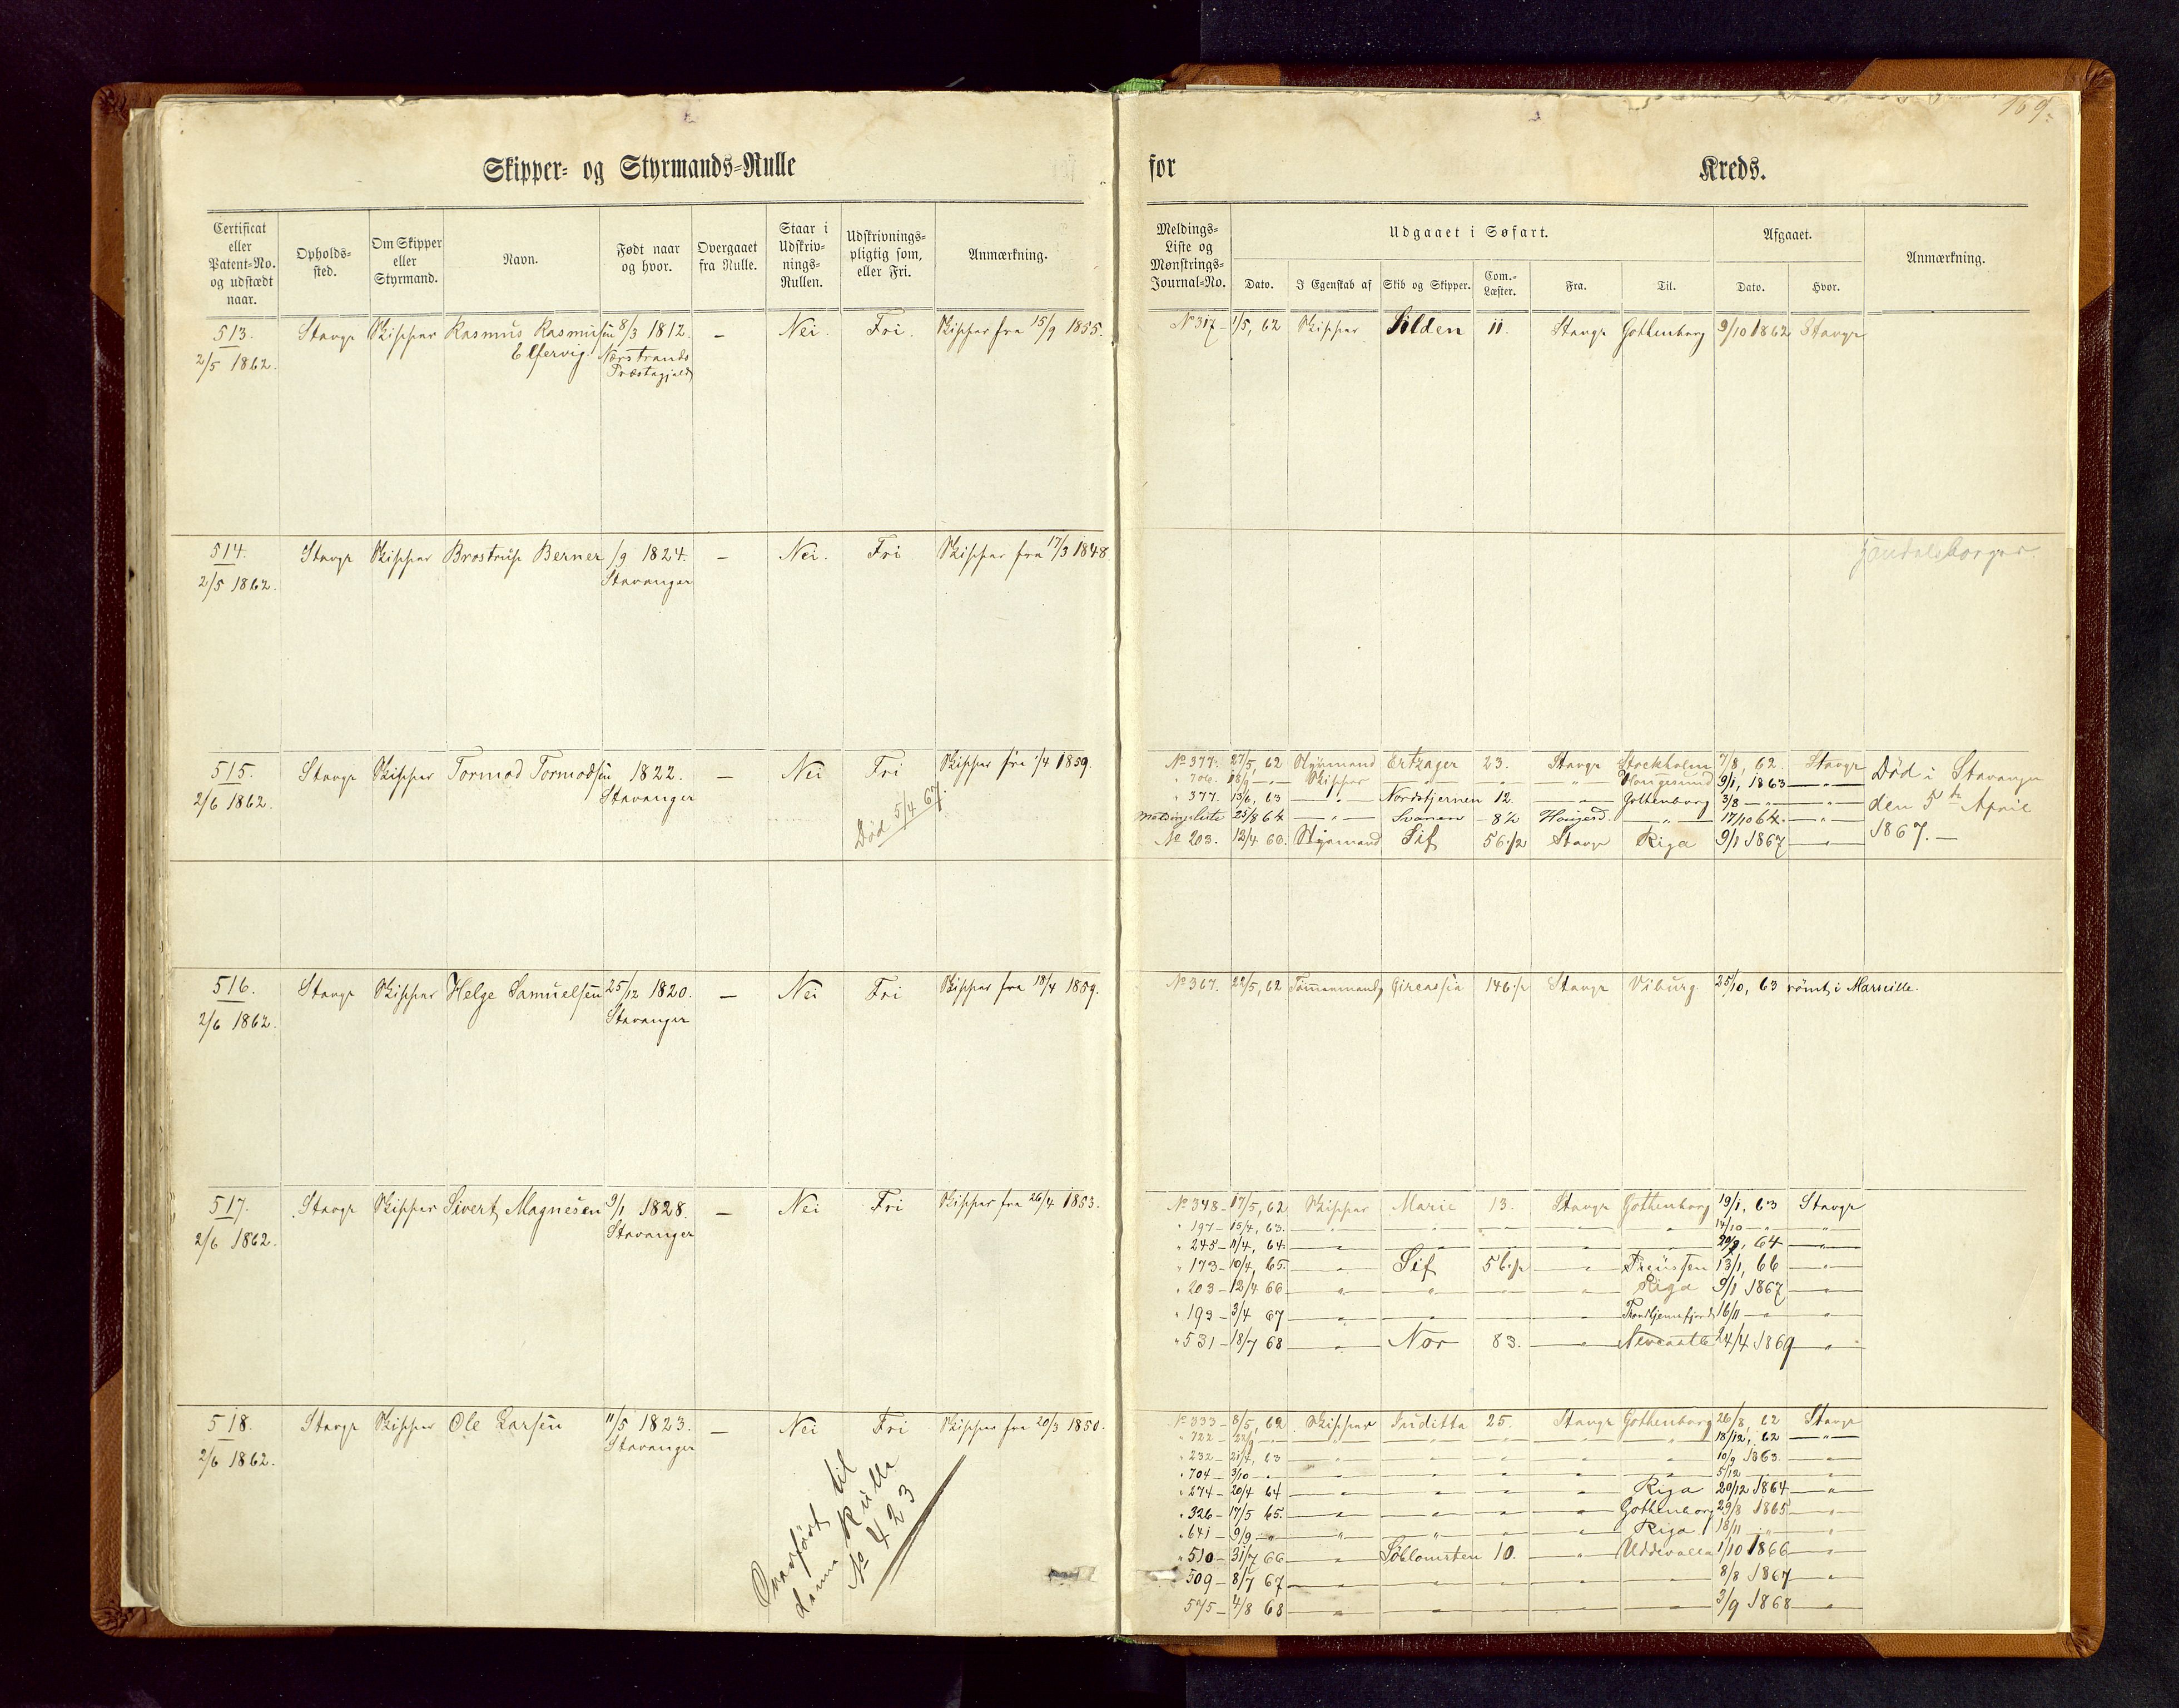 Skipper- og Styrmands-Rulle
for Kreds.
Certificat eller Patent-No. og udstædt naar.
Opholdssted.
Om Skipper eller Styrmand.
Navn.
Født naar og hvor.
Overgaaet fra Rulle.
Staar i Udskrivnings-Rullen.
Udskrivningspligtig som, eller Fri.
Anmærkning.
Meldings-Liste og Mønstrings-Journal-No.
Udgaaet i Søfart.
Dato. I Egenskab af Skib og Skipper. Com.-Læster. Fra. Til.
Afgaaet.
Dato. Hvor.
Anmærkning.
513. Stavgr Skipper Rasmus Rasmusen 8/3 1812. — Nei. Fri. Skipper fra 15/9 1855.
2/5 1862. Elfervig. Nerstrands
Præstegjeld
No 317 - 1/5, 62 Skipper Silden 11. Stavgr Gothenborg 9/10 1862 Stavgr
514. Stavgr Skipper Brostrup Berner /9 1824. — Nei. Fri Skipper fra 17/3 1848.
2/5 1862. Stavanger
515. Stavgr Skipper Tormod Tormodsen 1822. — Nei Fri Skipper fra 1/4 1859.
2/6 1862. Stavanger
Død 5/4 67.
No 377. 27/5, 62 Styrmand Ertzager 23. Stavgr Stockholm 7/8, 62. Stavgr
" 706. 18/9 — " — Skipper — " — " — " Haugesund 9/1, 1863 — " —
" 377. 13/6, 63 — " — Nordstjernen 12. — " — Gothenborg 3/8 — " — — " —
Meldingsliste 25/8 64 — " — Svanen — 8½ Haugesd. — " — 17/10 64. — " —
No 203. 12/4 66. Styrmand Sif 56.½ Stavgr Riga 9/1 1867 — " —
Død i Stavanger
den 5te April
1867. —
516. Stavgr Skipper Helge Samuelsen 25/12 1820. — Nei Fri Skipper fra 18/4 1859.
2/6 1862. Stavanger
No 367. 22/5, 62 Tømmermand Circassia 146.½ Stavgr Viburg 25/10, 63 römt i Marseille.
517. Stavgr Skipper Sivert Magnesen 9/1 1828. — Nei Fri Skipper fra 26/4 1853.
2/6 1862. Stavanger
No 348 - 17/5, 62 Skipper Marie 13. Stavgr Gothenborg 19/1, 63 Stavgr
" 197 - 15/4, 63. — " — " — " — " — " 14/10 — " — "
" 245 - 11/4, 64. — " — " — " — " — " 64 — " —
" 173 - 10/4, 65. — " — Sif 56.½ — " — Preussen 13/1, 66 — " —
" 203 - 12/4 66 — " — " — " — " Riga 9/1 1867 — " —
" 193 - 3/4 67 — " — " — " — " Trondhjemsfjord 16/11 — " — "
" 531 - 18/7 68 — " — Nor 83. — " — Newcastle 24/4 1869 — " —
518. Stavgr Skipper Ole Larsen 11/5 1823. — Nei Fri Skipper fra 20/3 1850.
2/6 1862. Stavanger
Overført til
denne Rulle
No 423
No 333 - 8/5, 62 Skipper Juditta 25. Stavgr Gothenborg 26/8, 62 Stavgr
" 722 - 22/9 — " — " — " — " — " 18/12, 62 — " —
" 232 - 21/4, 63 — " — " — " — " — " 10/9 1863. — " —
" 704 - 3/10 — " — " — " — " — " — " 5/12 — " —
" 274 - 20/4 64 — " — " — " — " Riga 20/12 1864 — " —
" 326 - 17/5 65. — " — " — " — " Gothenborg 29/8 1865 — " —
" 641 - 9/9 — " — " — " — " — " Riga 18/11 — " — "
" 510 - 31/7 66 — " — Söblomsten 10. — " Uddevalla 1/10 1866 — " —
" 509 - 8/7 67 — " — " — " — " — 8/8 1867 — " —
" 4/8 68 — " — " — " — " — 3/9 1868 — " —